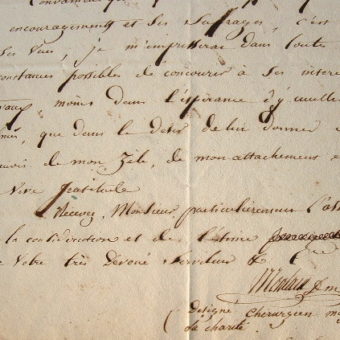 encouragement et ses suffrages, c'est
ses vues, je m'empresserai dans toutes
constances possibles de concourir à ses interets
moins dans l'espérance d'y
que dans le desir de lui donner
de mon zèle, de mon attachement e
vive gratitude
Recevez, Monsieur, particulierement l'ass
la consideration et de l'estime
votre très Devoué serviteur &
designé chirurgien
la charité.